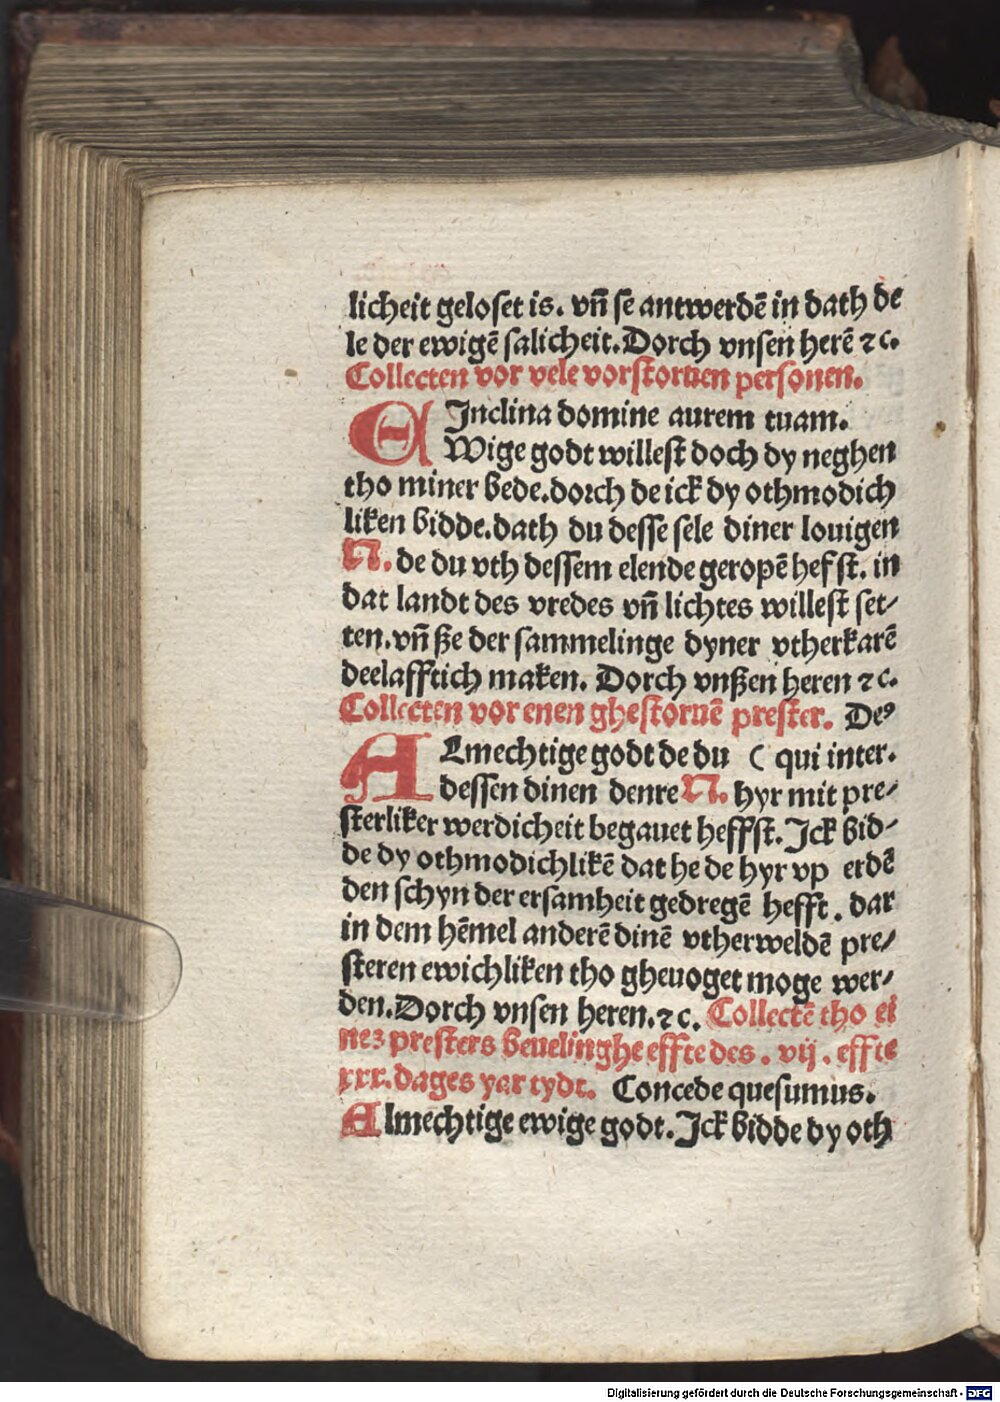 licheit geloset is. vñ se antwerdē in dath de
le der ewigē salicheit. Dorch vnsen herē ⁊c.
Collecten vor vele vorstoruen personen.
Inclina domine aurem tuam.
EWige godt willest doch dy neghen
tho miner bede. dorch de ick dy othmodich
liken bidde. dath du desse sele diner louigen
N. de du vth dessem elende geropē hefst. in
dat landt des vredes vñ lichtes willest set⸗
ten. vñ ße der sammelinge dyner vtherkarē
deelafftich maken. Dorch vnßen heren ⁊c.
Collecten vor enen ghestoruē prester. Deꝰ
ALmechtige godt de du ( qui inter.
dessen dinen denre N. hyr mit pre⸗
sterliker werdicheit begauet heffst. Ick bid⸗
de dy othmodichlikē dat he de hyr vp erdē
den schyn der ersamheit gedregē hefft. dar
in dem hēmel anderē dinē vtherweldē pre⸗
steren ewichliken tho gheuoget moge wer⸗
den. Dorch vnsen heren. ⁊c. Collectē tho ei
nez presters beuelinghe effte des. vij. effte
xxx. dages yar tydt. Concede quesumus.
Almechtige ewige godt. Ick bidde dy oth
Digitalisierung gefördert durch die Deutsche Forschungsgemeinschaft - DFG